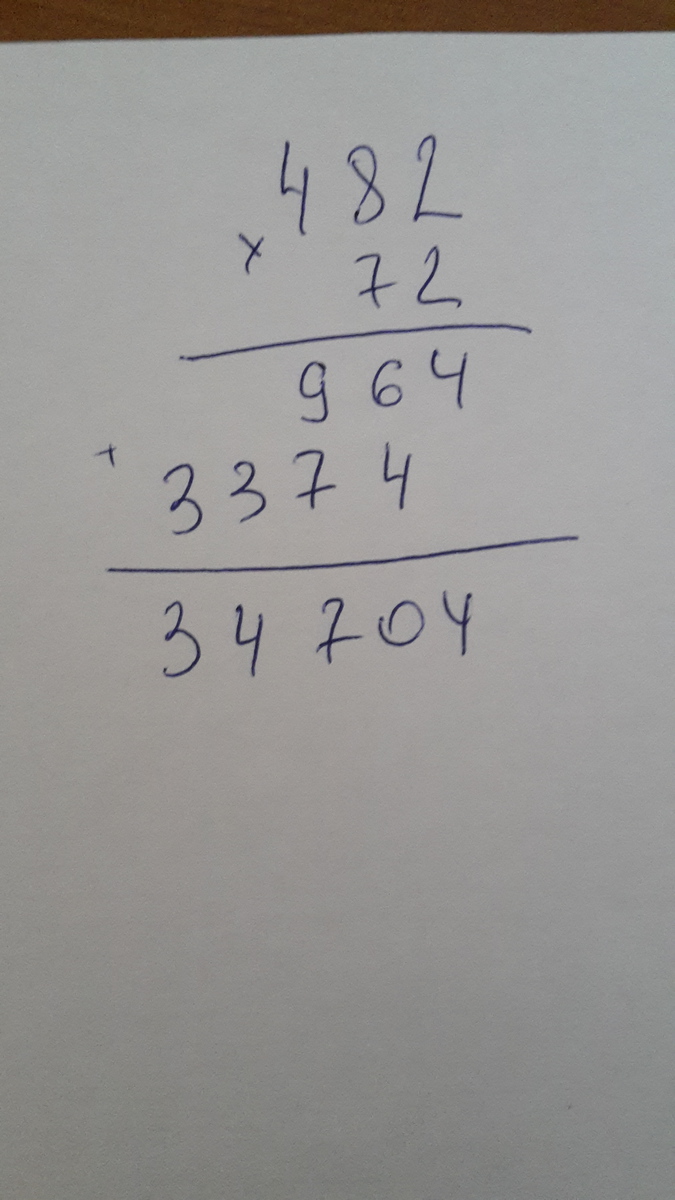 482
× 72
964
+ 3374
34704